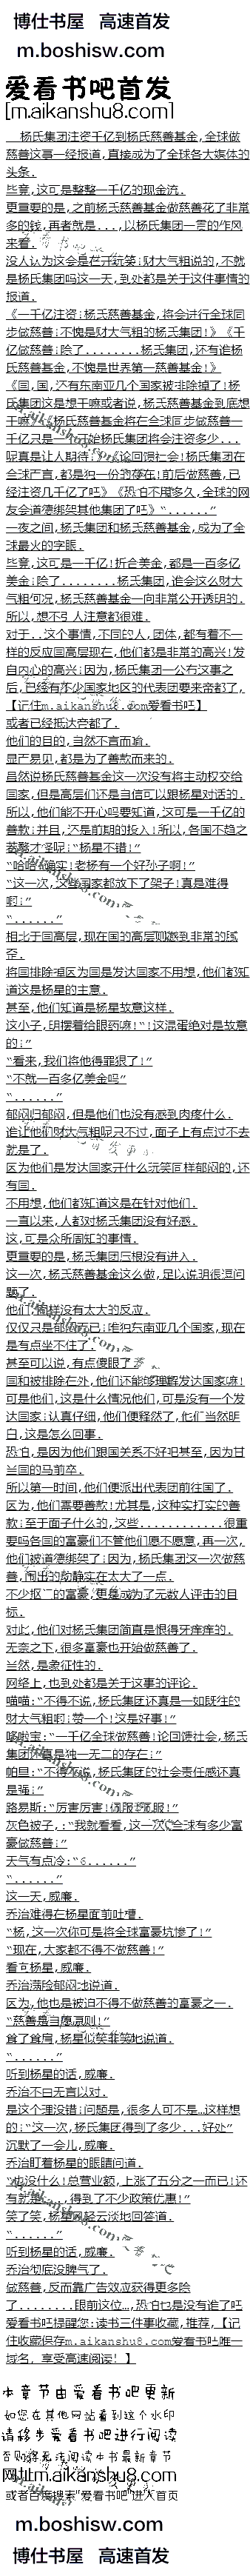 博仕书屋 高速首发
m.boshisw.com
爱看书吧首发
[m.aikanshu8.com]
杨氏集团注资千亿到杨氏慈善基金,全球做
慈善这事一经报道,直接成为了全球各大媒体的
头条.
毕竟,这可是整整一千亿的现金流.
更重要的是,之前杨氏慈善基金做慈善花了非常
多的钱,再者就是...,以杨氏集团一贯的作风
来看.
没人认为这会是在开玩笑!财大气粗说的,不就
是杨氏集团吗这一天,到处都是关于这件事情的
报道.
《一千亿注资!杨氏慈善基金,将会进行全球同
步做慈善!不愧是财大气粗的杨氏集团!》《千
亿做慈善!除了........杨氏集团,还有谁杨
氏慈善基金,不愧是世界第一慈善基金!》
《国,国,还有东南亚几个国家被排除掉了!杨
氏集团这是想干嘛或者说,杨氏慈善基金到底想
干嘛》《杨氏慈善基金将在全球同步做慈善一
千亿只是一 治杨氏集团将会注资多少...
呢真是让人期待!》《论回馈社会!杨氏集团在
全球严言,都是独一份的存在!前后做慈善,已
经注资几千亿了吧》《恐怕不用多久,全球的网
友会道德绑架其他集团了吧》“......”
一夜之间,杨氏集团和杨氏慈善基金,成为了全
球最火的字眼.
毕竟,这可是一千亿!折合美金,都是一百多亿
美金!除了........杨氏集团,谁会这么财大
气粗何况,杨氏慈善基金一向非常公开透明的.
所以,想不引人注意都很难.
对于..这个事情,不同的人,团体,都有着不一
样的反应国高层现在,他们都是非常的高兴!发
自内心的高兴!因为,杨氏集团一公布这事之
后,已经有不少国家地区的代表团要来帝都了,
【记住m.aikanshu8.com爱看书吧】
或者已经抵达帝都了.
他们的目的,当然不言而喻.
显而易见,都是为了善款而来的.
虽然说杨氏慈善基金这一次没有将主动权交给
国家,但是高层们还是自信可以跟杨星对话的.
所以,他们能不开心吗要知道,这可是一千亿的
善款!并且,还是前期的投入!所以,各国不趋之
若鹜才怪呢!“杨星不错!”
“哈哈,确实!老杨有一个好孙子啊!”
“这一次,这些国家都放下了架子!真是难得
啊!”
“......”
相比于国高层,现在国的高层则感到非常的郁
歪.
将国排除掉区为国是发达国家不用想,他们都知
道这是杨星的主意.
甚至,他们知道是杨星故意这样.
这小子,明摆着给眼药嘛!“!这混蛋绝对是故意
的!”
“看来,我们将他得罪狠了!”
“不就一百多亿美金吗”
“......”
郁闷归郁闷,但是他们也没有感到肉疼什么.
谁让他们财大气粗呢只不过,面子上有点过不去
就是了.
区为他们是发达国家开什么玩笑同样郁闷的,还
有国.
不用想,他们都知道这是在针对他们.
一直以来,人都对杨氏集团没有好感.
这,可是众所周知的事情.
更重要的是,杨氏集团压根没有进入.
这一次,杨氏慈善基金这么做,足以说明很多问
题了.
他们,同样没有太大的反应.
仅仅只是郁闷而已!唯独东南亚几个国家,现在
是有点坐不住了.
甚至可以说,有点傻眼了.
国和被排除在外,他们还能够理解发达国家嘛!
可是他们,这是什么情况他们,可是没有一个发
达国家!认真仔细,他们便释然了,他们当然明
白,这是怎么回事.
恐怕,是因为他们跟国关系不好吧甚至,因为甘
当国的马前卒.
所以第一时间,他们便派出代表团前往国了.
区为,他们需要善款!尤其是,这种实打实的善
款!至于面子什么的,这些............很重
要吗各国的富豪们不管他们愿不愿意,再一次,
他们被道德绑架了!因为,杨氏集团这一次做慈
善,闹出的动静实在太大了一点.
不少抠门的富豪,更是成为了无数人评击的目
标.
对此,他们对杨氏集团简直是恨得牙痒痒的.
无奈之下,很多富豪也开始做慈善了.
当然,是象征性的.
网络上,也到处都是关于这事的评论.
喵喵:“不得不说,杨氏集团还真是一如既往的
财大气粗啊!赞一个!这是好事!”
哆啦宝:“一千亿全球做慈善!论回馈社会,杨氏
集团的确是独一无二的存在!”
帕克:“不得不说,杨氏集团的社会责任感还真
是强!”
路易斯:“厉害厉害!佩服佩服!”
灰色被子,:“我就看看,这一次全球有多少富
豪做慈善!”
天气有点冷:“6......”
“......”
这一天,威廉.
乔治难得在杨星面前吐槽.
“杨,这一次你可是将全球富豪坑惨了!”
“现在,大家都不得不做慈善!”
看向杨星,威廉.
乔治满脸郁闷地说道.
区为,他也是被迫不得不做慈善的富豪之一.
“慈善是自愿原则!”
耸了耸肩,杨星似笑非笑地说道.
“......”
听到杨星的话,威廉.
乔治不由无言以对.
是这个理没错!问题是,很多人可不是…这样想
的!“这一次,杨氏集团得到了多少...好处”
沉默了一会儿,威廉.
乔治盯着杨星的眼睛问道.
“也没什么!总营业额,上涨了五分之一而已!还
有就是...,得到了不少政策优惠!”
笑了笑,杨星风轻云淡地回答道.
“......”
听到杨星的话,威廉.
乔治彻底没脾气了.
做慈善,反而靠广告效应获得更多除
了........眼前这位…,恐怕也是没有谁了吧
爱看书吧提醒您:读书三件事收藏,推荐,【记
住收藏保存m.aikanshu8.com爱看书吧唯一
域名, 享受高速阅读!】
本章节由爱看书吧更新
如您在其他网站看到这个水印
请移步爱看书吧进行阅读
否则将无法阅读本书最新章节
网址m.aikanshu8.com
或者百度搜索“爱看书吧”进入首页
m.boshisw.com
博仕书屋 高速首发